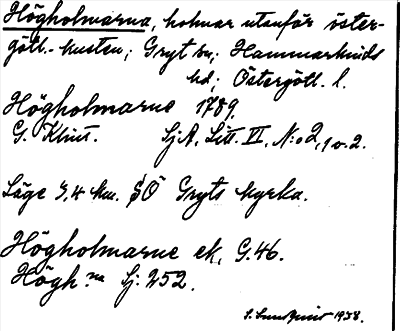 Högholmarna, holmar utanför öster-
götl.-kusten; Gryt sn; Hammarkinds
hd; Östergötl. l.
Högholmarne 1789.
G. Klint. SjA, Litt. VI, N:o 2, 1 o. 2.
Läge 3,4 km. SÖ Gryts kyrka.
Högholmarne ek, G.46.
Högh.na Sj: 252.
1938.